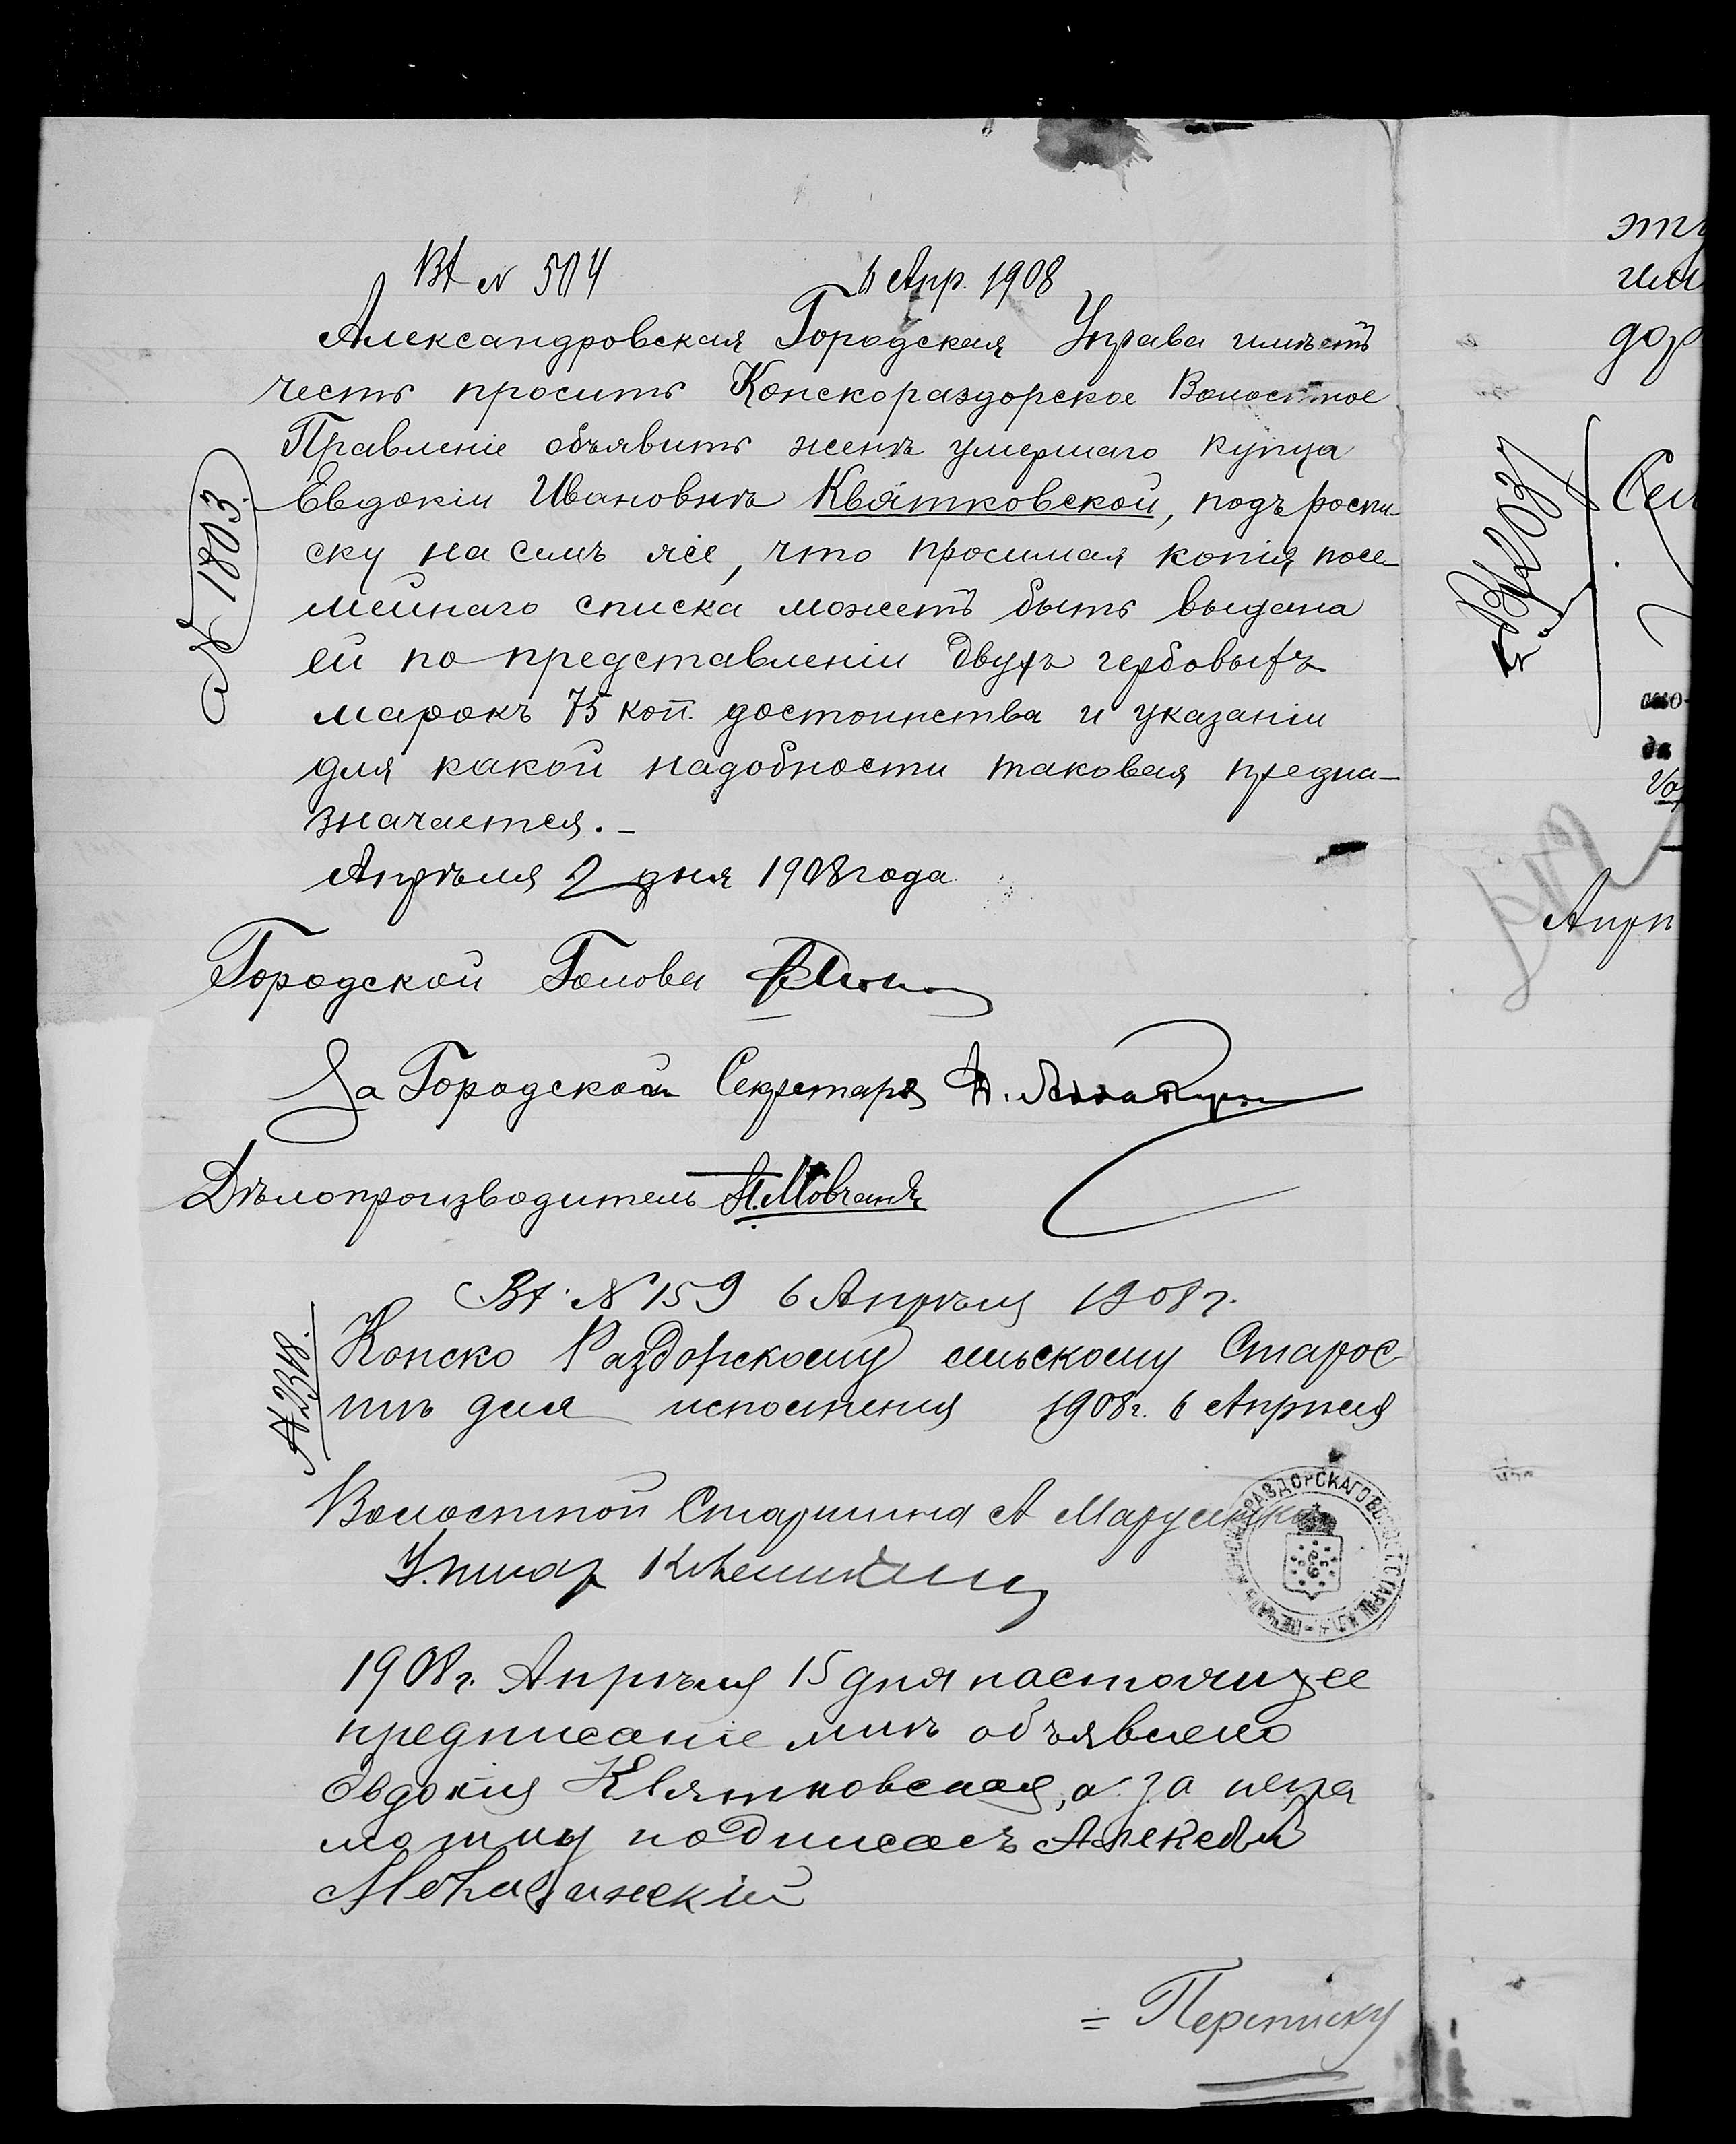 Вх № 504 6 Апр. 1908
Александровская Городская Управа имѣетъ
честь просить Конскораздорское Волостное
Правленіе объявить женѣ умершаго купца
Евдокіи Ивановнѣ Квятковской, подъ роспи
ску на семъ же, что просимая копія посе-
мейнаго списка можетъ быть выдана
ей по представленіи двухъ гербовыхъ
марокъ 75 коп. достоинства и указаніи
для какой надобности таковая предна-
значается.-
№ 1803.
Апрѣля 2 дня 1908 года
Городской Голова
За Городской Секретаря А.
Дѣлопроизводитель П. Мовчанъ
Вх. № 159 6 Апрѣля 1908 г.
№ 2348.
Конско Раздорскому сельскому Старос-
тѣ для исполнения 1908 г. 6 Апреля
Волостной Старшина А Марущенко
ПЕЧАТЬ КОНСКО-РАЗДОРСКАГО ВОЛОСТ. СТАРШИНЫ
1908 г. Апрѣля 15 дня настоящее
предписание мнѣ объявлено
Евдокия Квятковская, а за негра
мотну подписасъ Алексѣй
= Переписку
эту
дор
Вх 203
Апрѣ